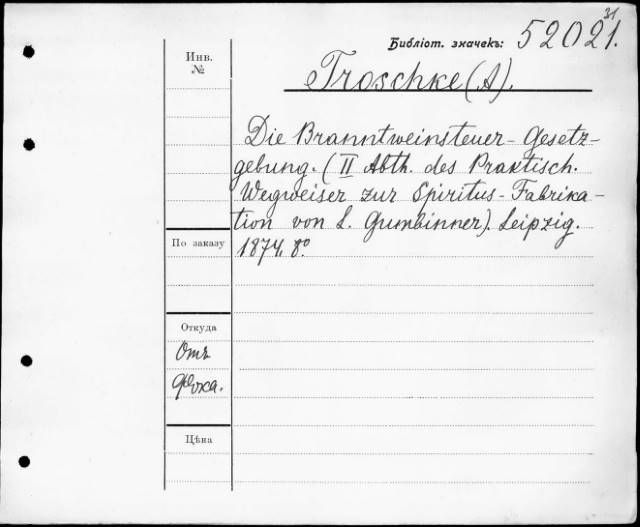 31
Библіот. значекъ: 52021.
Инв.
№
Troschke (A).
Die Branntweinsteuer-Gesetz-
gebung. (II Abth. des Praktisch.
Wegweiser zur Spiritus-Fabrika-
tion von L. Gumbinner). Leipzig.
По заказу
1874. 8º
Откуда
Отъ
Фока.
Цѣна